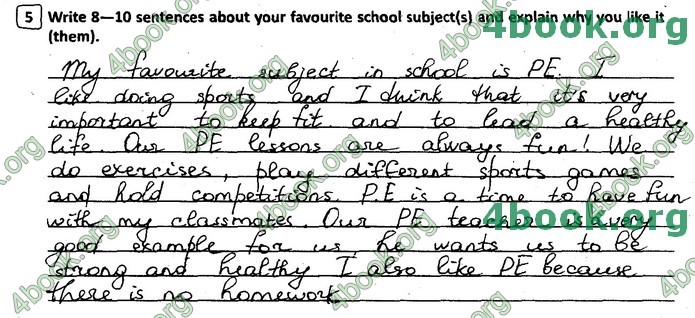 5 Write 8—10 sentences about your favourite school subject(s) and explain why you like it
(them).
My favourite subject in school is PE. I
like doing sports and I think that it's very
important to keep fit and to lead a healthy
life. Our PE lessons are always fun! We
do exercises, play different sports games
and hold competitions. P.E is a time to have fun
with my classmates. Our PE teacher is a very
good example for us he wants us to be
strong and healthy I also like PE because
there is no homework
4book.org
4book.org